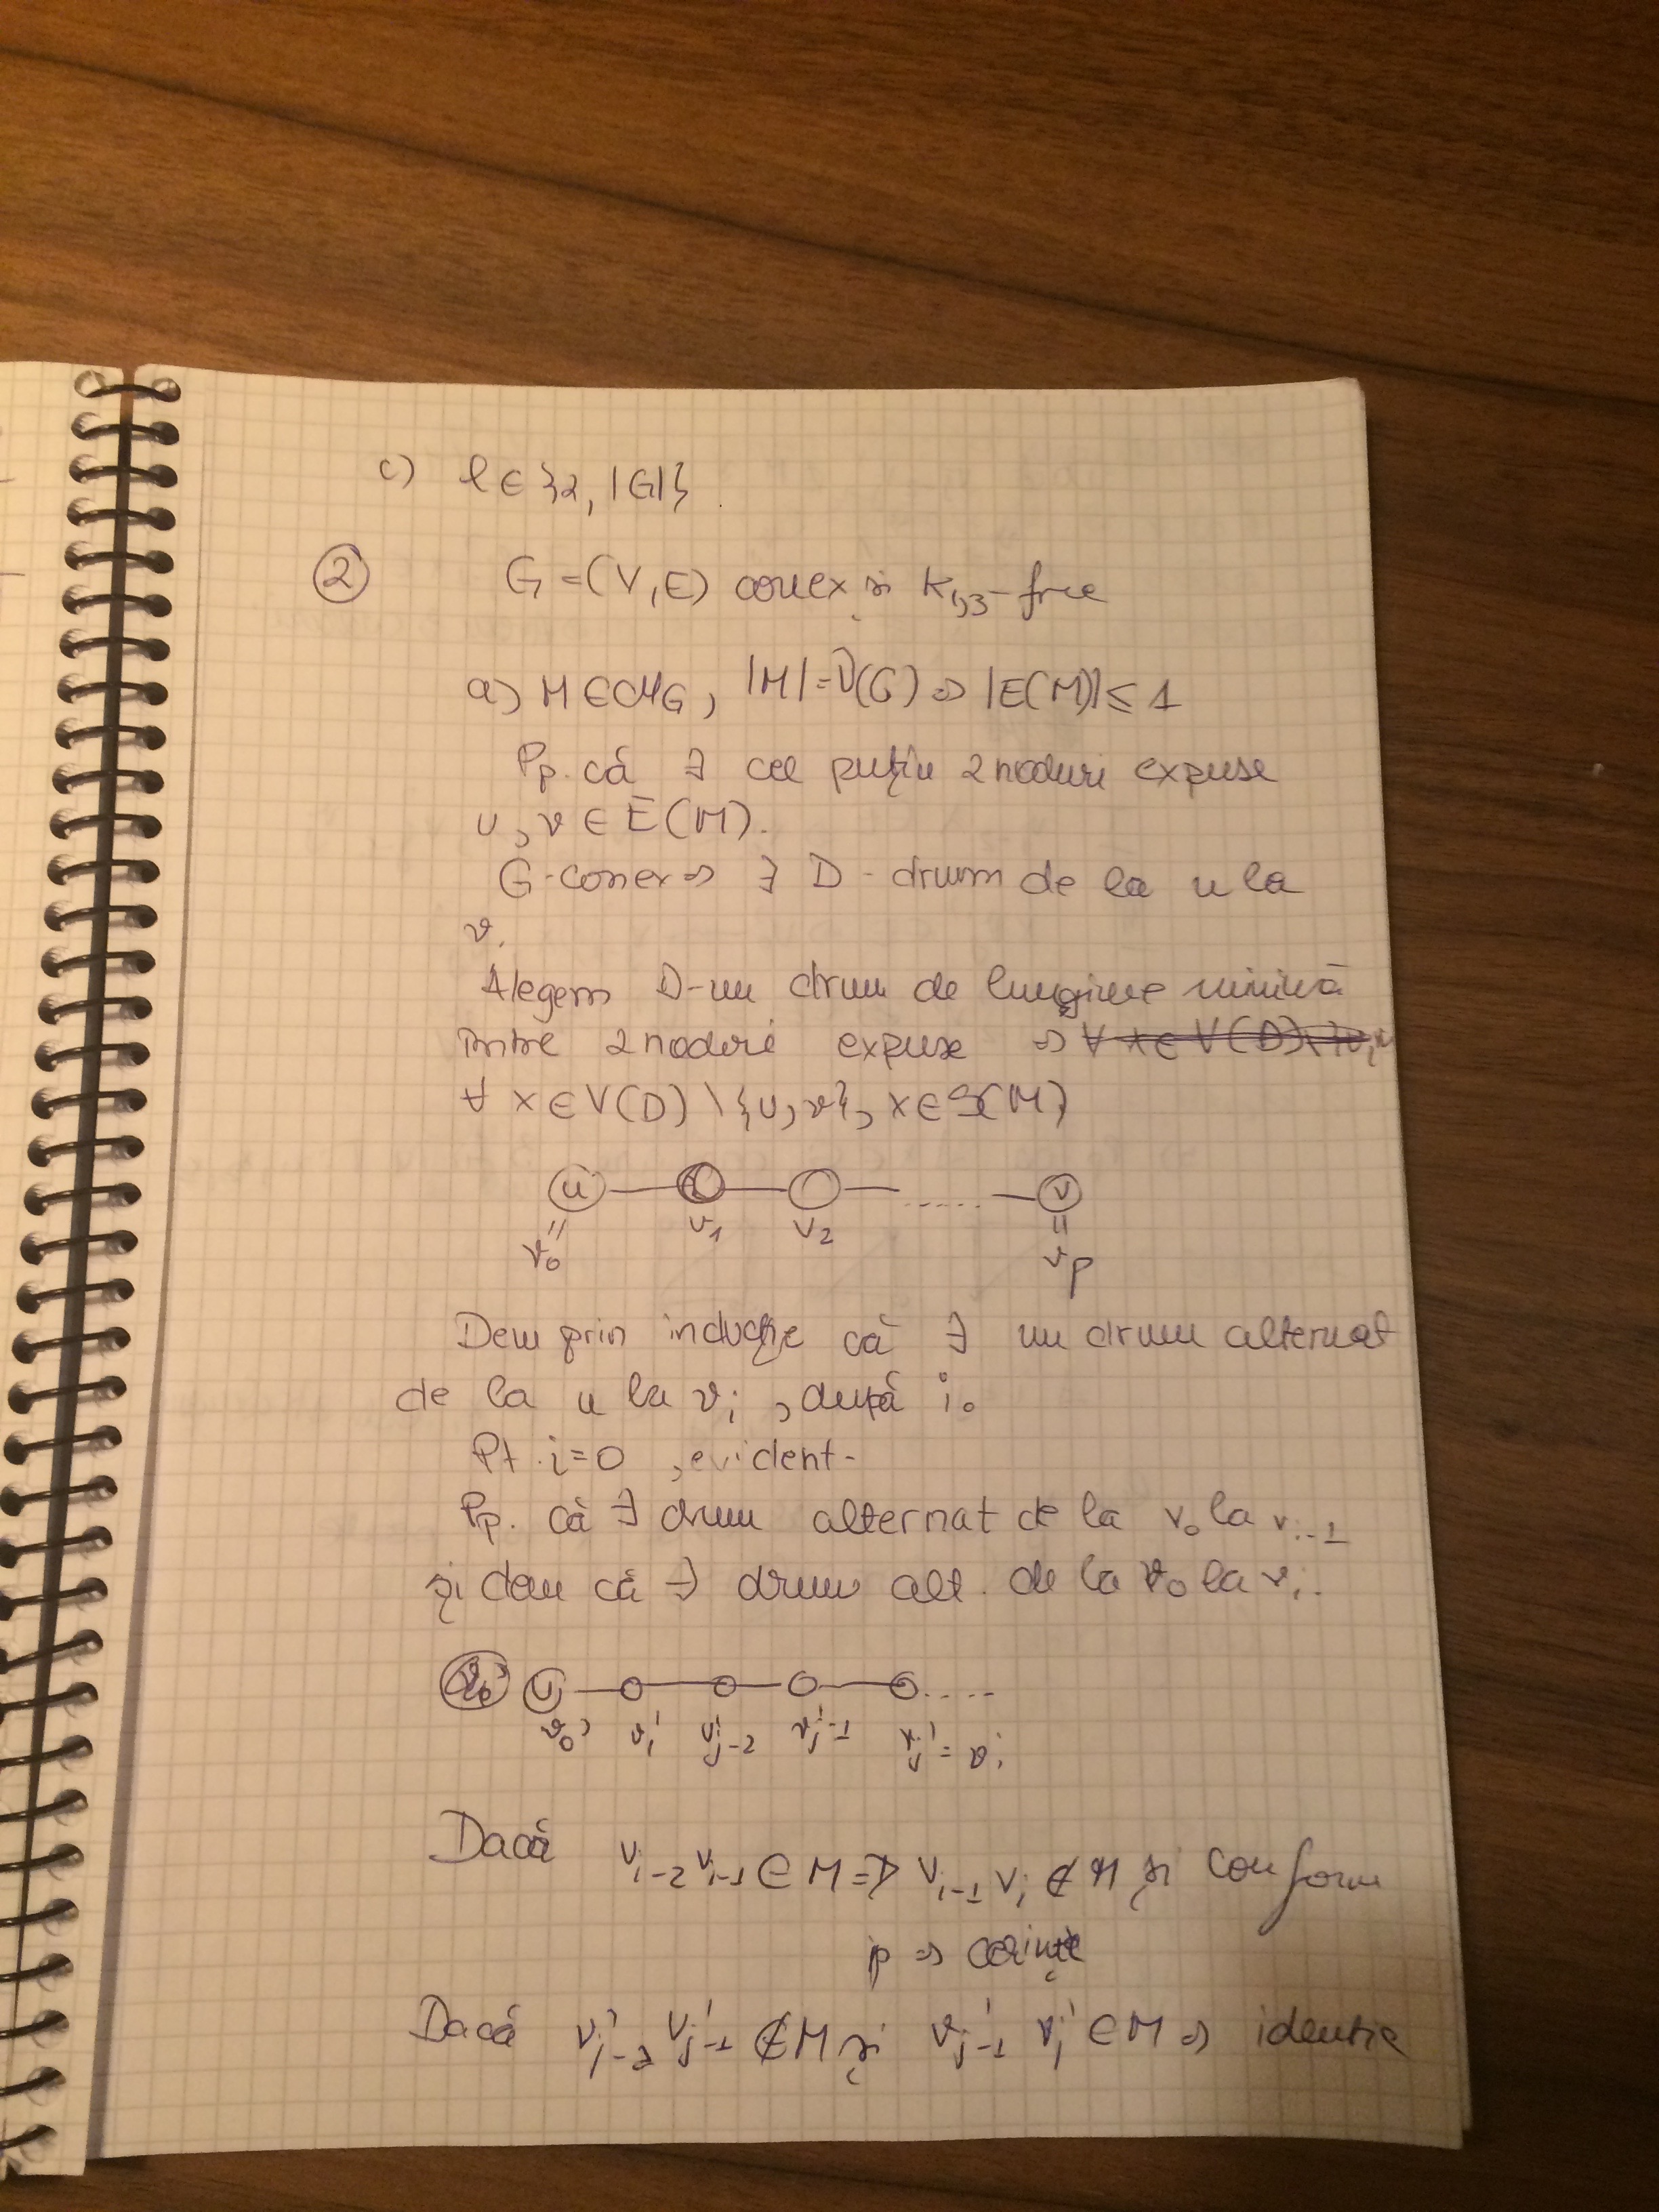 c) l ∈ {2, |G|}.
② G = (V, E) conex și K₁,₃-free
a) M ∈ ℳG, |M| = ν(G) ⇒ |E(M)| ≤ 1
Pp. că ∃ cel puțin 2 noduri expuse
u, v ∈ E(M).
G-conex ⇒ ∃ D - drum de la u la
v.
Alegem D-un drum de lungime minimă
între 2 noduri expuse ⇒
∀ x ∈ V(D) \ {u, v}, x ∈ S(M)
u v
v₀ v₁ v₂ vp
Dem prin inducție că ∃ un drum alternat
de la u la vᵢ, după i.
Pt. i=0, evident.
Pp. că ∃ drum alternat de la v₀ la vᵢ₋₁
și dem că ∃ drum alt. de la v₀ la vᵢ.
u
v₀' v₁' v'ⱼ₋₂ v'ⱼ₋₁ vⱼ' = vᵢ
Dacă vᵢ₋₂vᵢ₋₁ ∈ M ⇒ vᵢ₋₁vᵢ ∉ M și conform
ip ⇒ cerința
Dacă v'ⱼ₋₂ v'ⱼ₋₁ ∉ M și v'ⱼ₋₁ vⱼ' ∈ M ⇒ identic